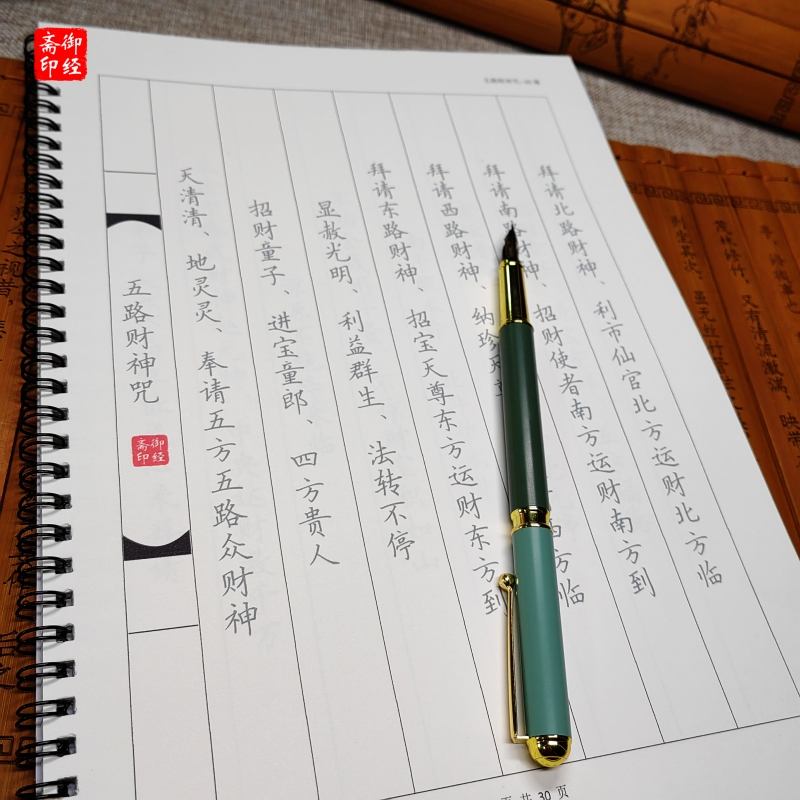 御经
斋印
五路财神咒
御经
斋印
天清清、地灵灵、奉请五方五路众财神
招财童子、进宝童郎、四方贵人
显赦光明、利益群生、法转不停
拜请东路财神、招宝天尊东方运财东方到
拜请西路财神、纳珍天 西方临
拜请南路财神、招财使者南方运财南方到
拜请北路财神、利市仙官北方运财北方临
页 共 30 页
茂林修竹，又有清流激湍，映带
虽无丝竹管弦